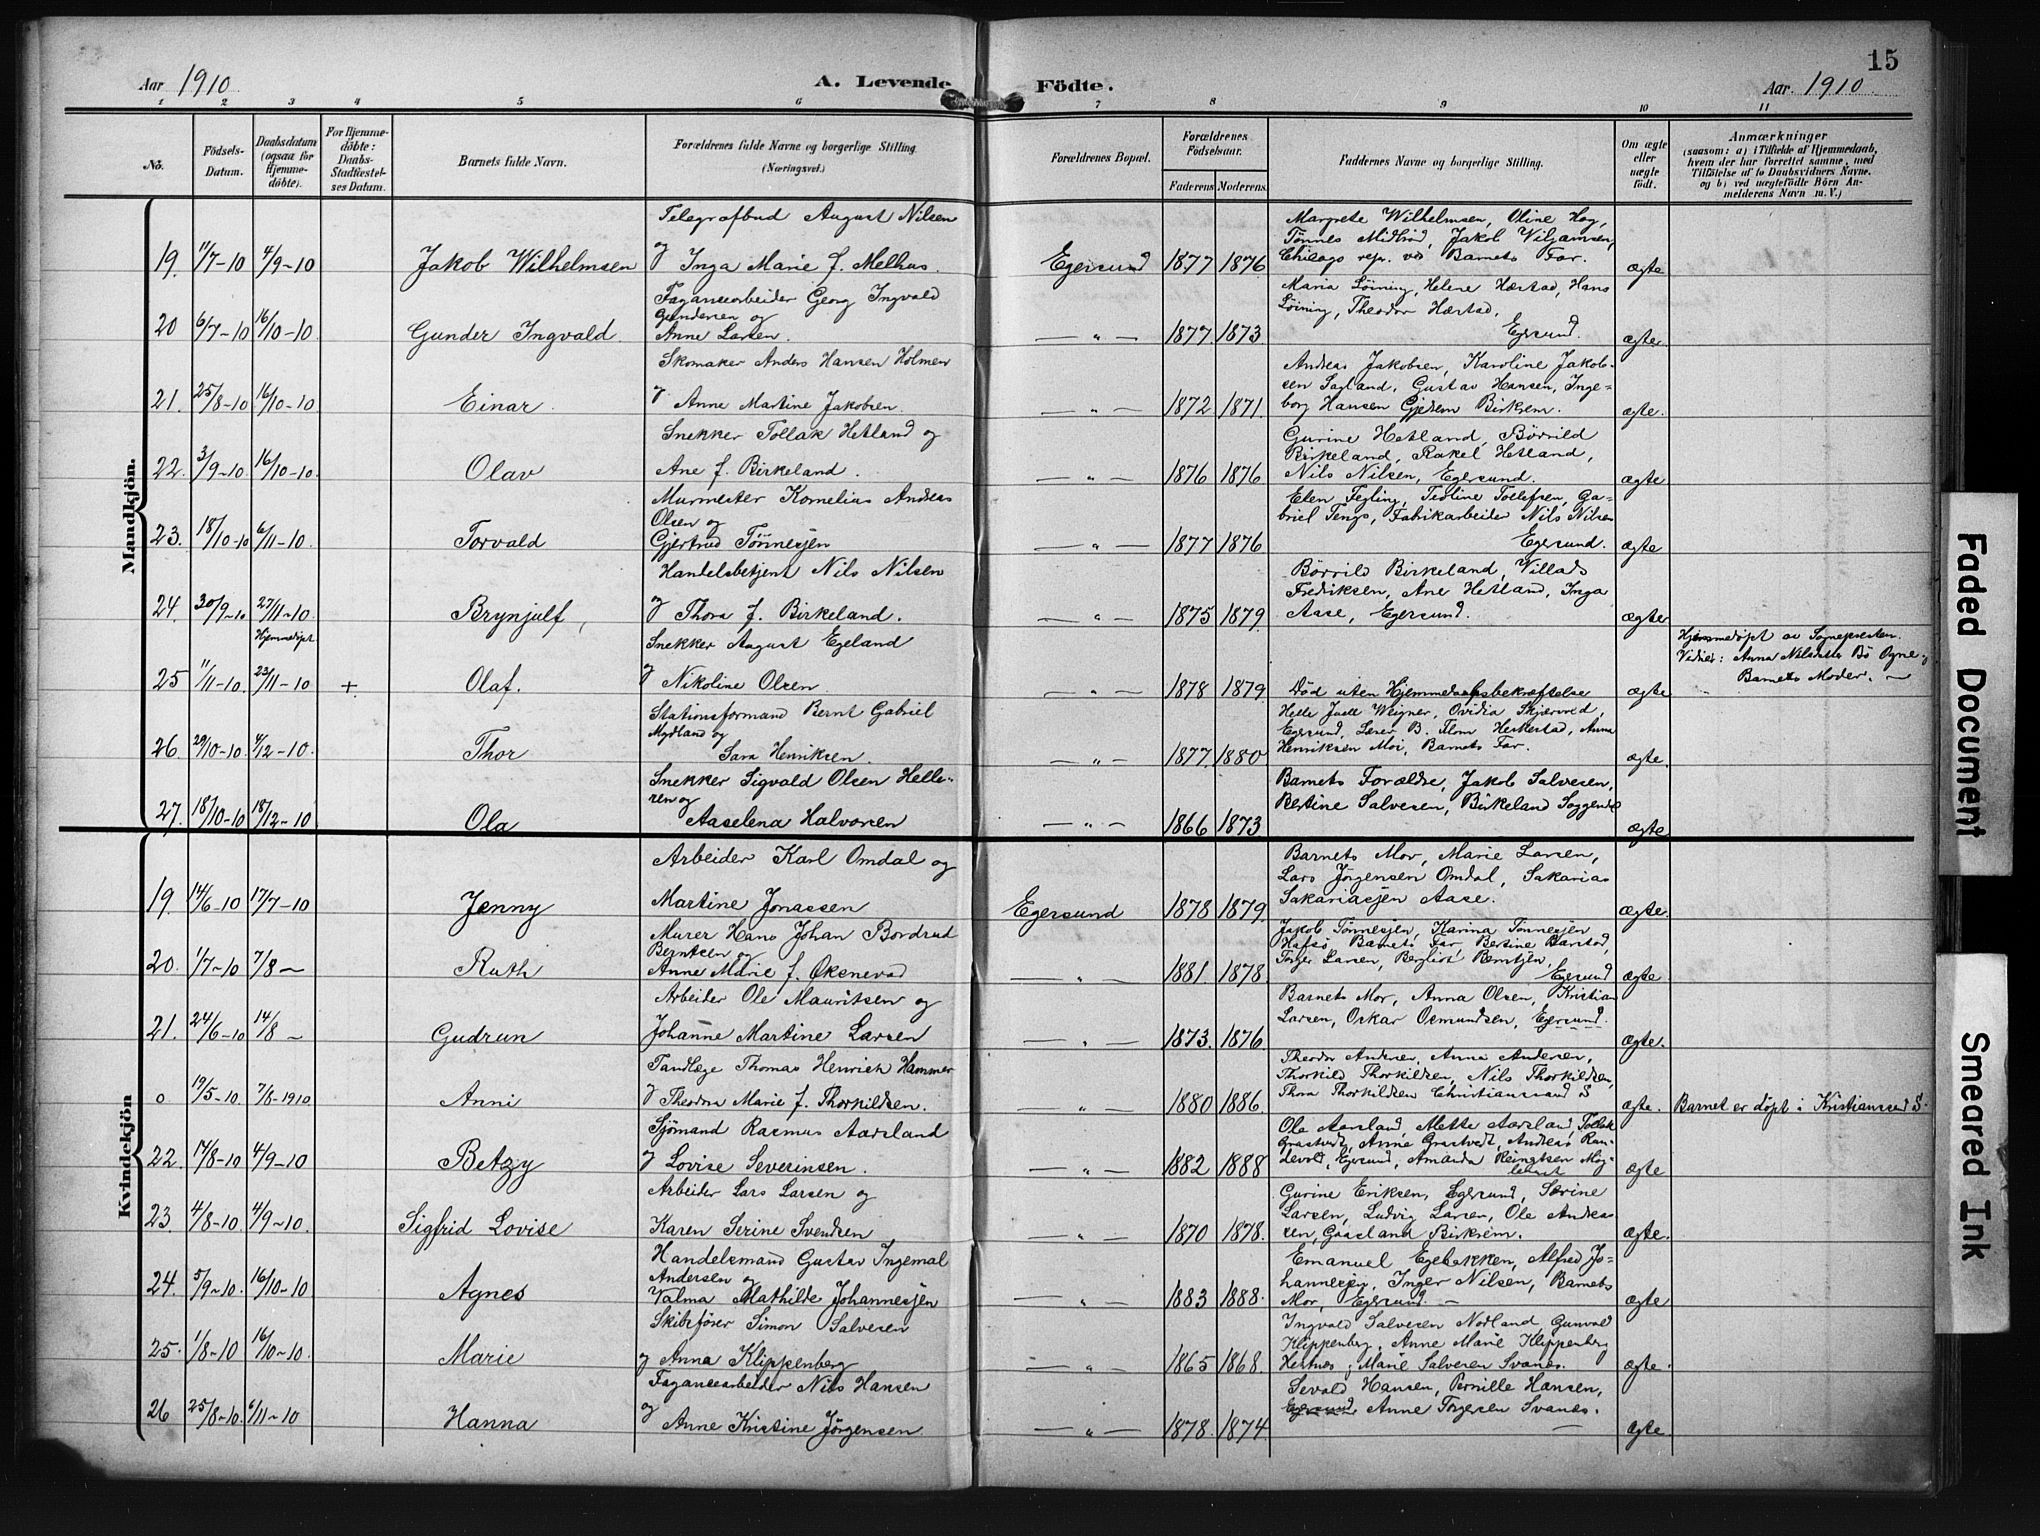 15
Aar 1910
A. Levende Födte.
Aar 1910
1 2 3 4 5 6 7 8 9 10 11
No.
Födsels-Datum.
Daabsdatum (ogsaa for Hjemmedöbte).
For Hjemmedöbte: Daabs-Stadfæstelses Datum.
Barnets fulde Navn.
Forældrenes fulde Navne og borgerlige Stilling. (Næringsvei.)
Forældrenes Bopæl.
Forældrenes Födselsaar.
Faderens. Moderens.
Faddernes Navne og borgerlige Stilling.
Om ægte eller uægte födt.
Anmærkninger
(saasom: a) i Tilfælde af Hjemmedaab, hvem der har forrettet samme, med Tilföielse af to Daabsvidners Navne, og b) ved uægtefödte Börn Anmelderens Navn m. V.)
Mandkjön.
Telegrafbud August Nilsen
19. 11/7-10 4/9-10 Jakob Wilhelmsen og Inga Marie f. Melhus. Egersund 1877 1876 ægte
Margrete Wilhelmsen, Oline Hog,
Tönnes Midbröd, Jakob Viljamsen,
Chicago repr. ved Barnets Far.
Fayancearbeider Georg Ingvald
Gundersen og
20 6/7-10 16/10-10 Gunder Ingvald Anne Larsen. — " — 1877 1873 ægte.
Maria Löining, Helene Hæstad, Hans
Löining, Theodor Hæstad,
Egersund.
Skomaker Anders Hansen Holmen
21. 25/8-10 16/10-10 Einar. og Anne Martine Jakobsen. — " — 1872 1871. ægte.
Andreas Jakobsen, Karoline Jakob-
sen Sagland, Gustav Hansen, Inge-
borg Hansen Gjedrem Birkrem.
Snekker Tollak Hetland og
22. 3/9-10 16/10-10 Olav Ane f. Birkeland. — " — 1876 1876 ægte
Gurine Hetland, Børrild
Birkeland, Rakel Hetland,
Nils Nilsen, Egersund.
Murmester Kornelius Andreas
Olsen og
23. 18/10-10 6/11-10. Torvald Gjertrud Tönnesjen — " — 1877 1876 ægte
Elen Tegling, Teoline Tollefsen, Ga-
briel Tengs, Fabrikarbeider Nils Nilsen
Egersund.
Handelsbetjent Nils Nilsen
24. 30/9-10 27/11-10 Brynjulf, og Thora f. Birkeland. — " — 1875 1879. ægte
Børrild Birkeland, Villads
Fredriksen, Ane Hetland, Inga
Aase, Egersund.
Hjemmedøpt
Snekker August Egeland
25 11/11-10. 23/11-10 + Olaf. og Nikoline Olsen — " — 1878 1879 Död uten Hjemmedaabsbekræftelse ægte
Hjemmedøpt av Sognepresten.
Vidner: Anna Nilsdatter Bö Ogne og
Barnets Moder. —
Stationsformand Bernt Gabriel
Mydland og
26. 29/10-10. 4/12-10. Thor Sara Henriksen. — " — 1877. 1880 ægte.
Helle Juell Weigner, Ovidia Skjærved,
Egersund, Lærer B. Flom Heskestad, Anna
Henriksen Moi, Barnets Far.
Snekker Sigvald Olsen Helle-
ren og
27. 18/10-10 18/12-10 Ola Aaselena Halvorsen — " — 1866 1873 ægte
Barnets Forældre, Jakob Salvesen,
Bertine Salvesen, Birkeland Soggendal
Kvindekjön
Arbeider Karl Omdal og
19. 14/6-10 17/7-10 Jenny Martine Jonassen Egersund 1878 1879. ægte.
Barnets Mor, Marie Larsen,
Lars Jörgensen Omdal, Sakarias
Sakariasjen Aase.
Murer Hans Johan Bordrud
Berntsen og
20. 1/7-10 7/8 — Ruth Anne Marie f. Øksnevad — " — 1881. 1878. ægte.
Jakob Tönnesjen, Karina Tönnesjen
Hafsö Barnets Far, Bertine Barstad,
Torger Larsen, Bergliot Berntjen,
Egersund
Arbeider Ole Mauritsen og
21. 24/6-10 14/8 — Gudrun Johanne Martine Larsen — " — 1873. 1876. ægte.
Barnets Mor, Anna Olsen, Kristian
Larsen, Oskar Osmundsen, Egersund.
Tandlæge Thomas Henrich Hammer
0 19/5-10. 7/8-1910 Anni og Theodora Marie f. Thorkildsen. — " — 1880 1886. ægte. Barnet er döpt i Kristianssand S.
Theodor Andersen, Anna Andersen,
Thorkild Thorkildsen, Nils Thorkildsen,
Thora Thorkildsen Christianssand S
Sjömand Rasmus Aarsland
22. 17/8-10 4/9-10 Betzy og Lovise Severinsen. — " — 1882 1888 ægte
Ole Aarsland, Mette Aarsland, Tollak
Grastvedt, Anne Grastvedt, Andreas Ran-
devold, Egersund, Amanda
Arbeider Lars Larsen og
23. 4/8-10. 4/9-10. Sigfrid Lovise Karen Serine Svendsen — " — 1870 1878. ægte.
Gurine Eriksen, Egersund, Særine
Larsen, Ludvig Larsen, Ole Andreas-
sen, Gaasland Birkrem.
Handelsmand Gustav Ingemal
Andersen og
24. 5/9-10. 16/10-10 Agnes Valma Mathilde Johannesjen — " — 1883 1888. ægte
Emanuel Egebakken, Alfred Jo-
hannesjen, Inger Nilsen, Barnets
Mor, Egersund. —
Skibsförer Simon Salvesen
25. 1/8-10 16/10-10. Marie og Anna Klippenberg — " — 1865 1868. ægte.
Ingvald Salvesen Nodland, Gunvald
Klippenberg, Anne Marie Klippenberg
Hestnes, Marie Salvesen Svanes.
Fayancearbeider Nils Hansen
26 25/8-10. 6/11-10 Hanna og Anne Kristine Jörgensen — " — 1878. 1874. — ægte.
Sevald Hansen, Pernille Hansen,
Egersund, Anne Torgersen Svanes.
Faded Document
Smeared Ink